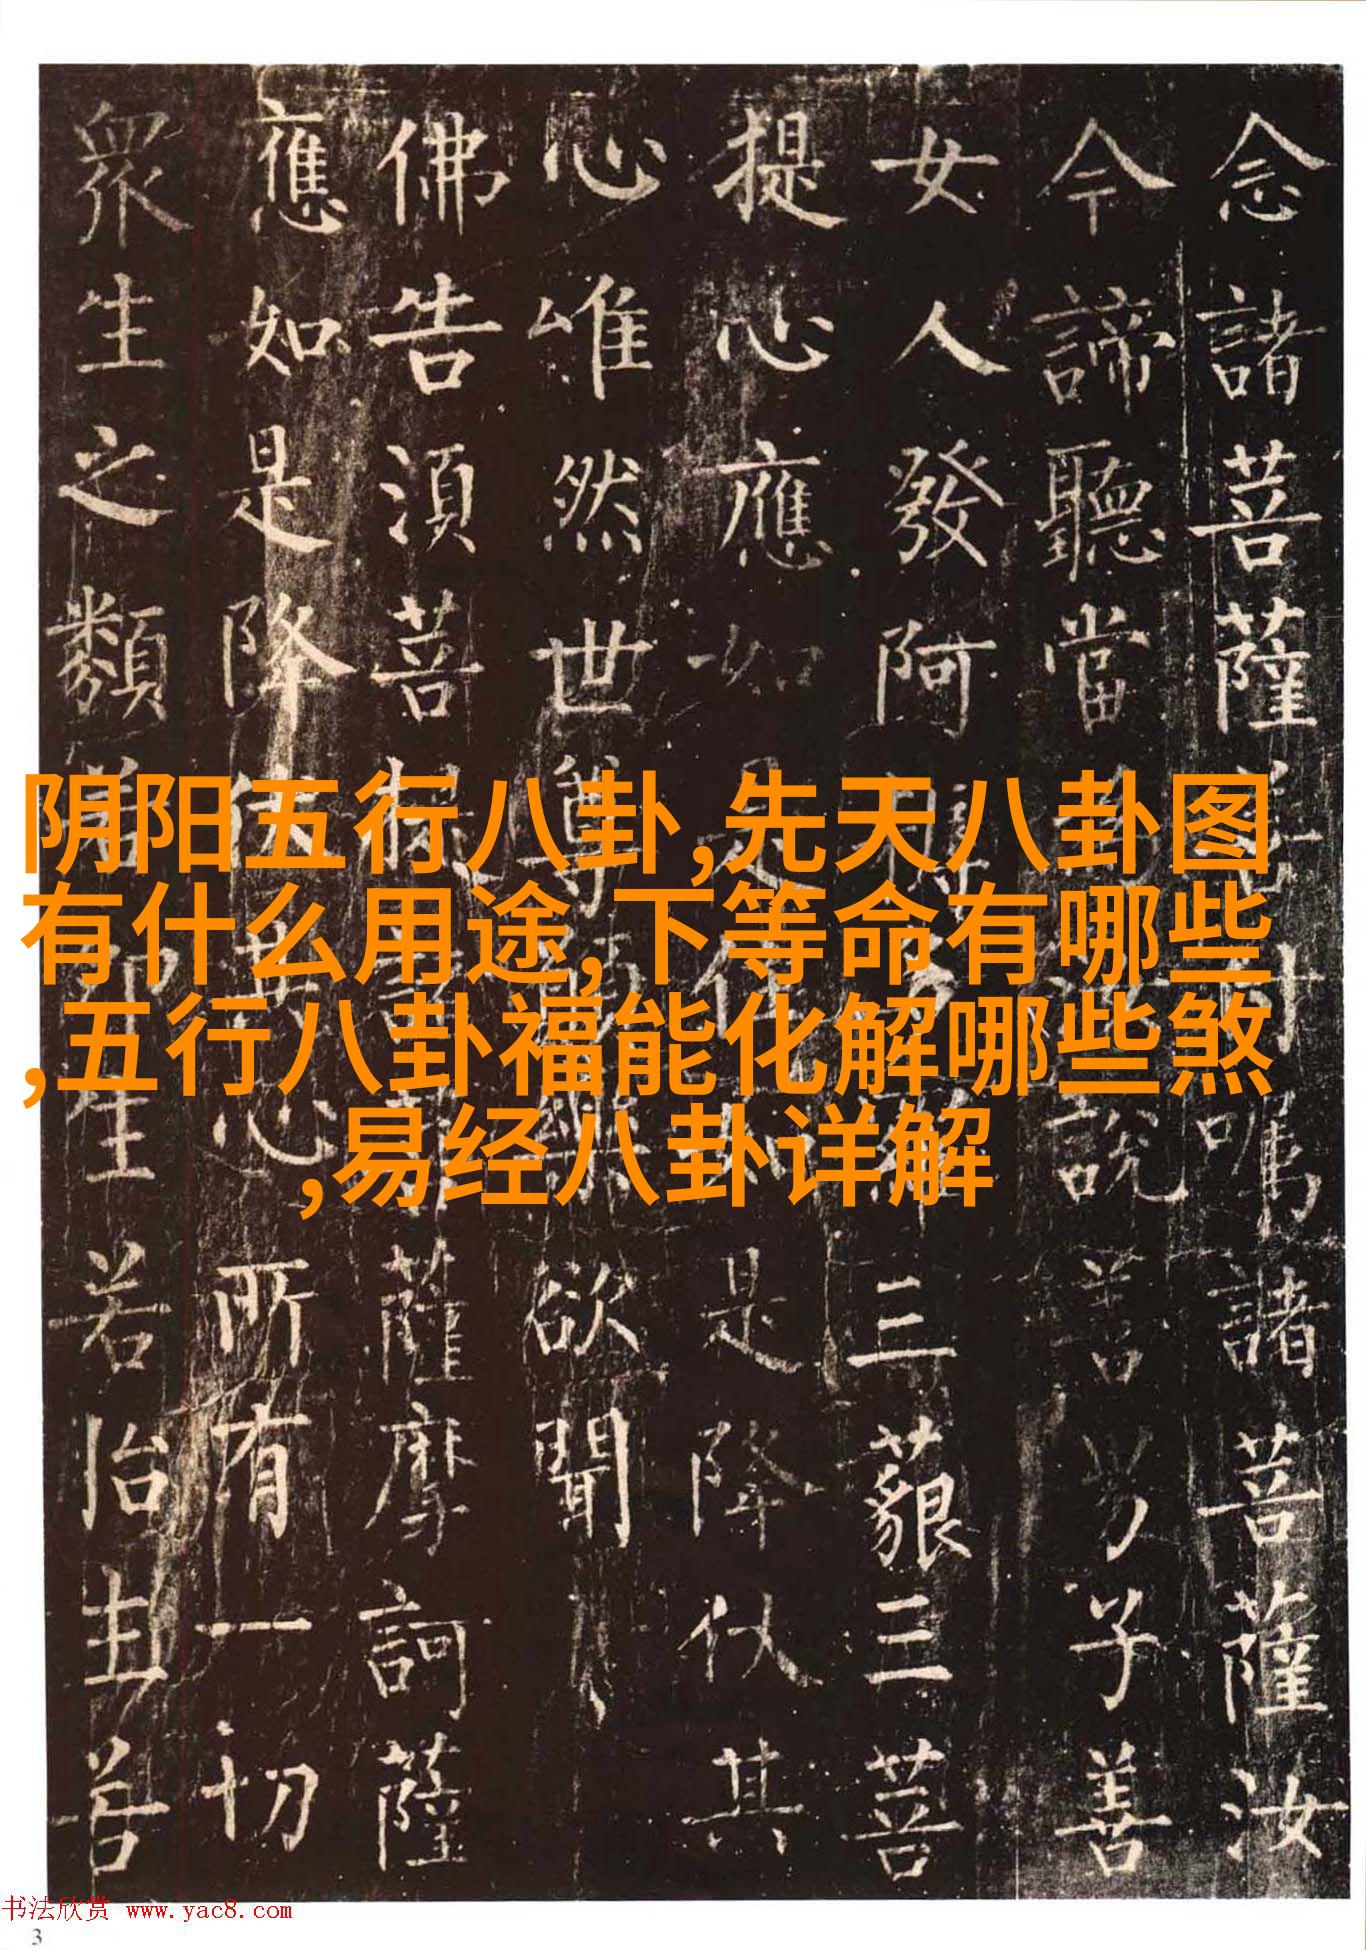 念諸菩薩付囑諸菩薩汝
今諦聽當說善男子善
女人發阿耨三藐三菩
提心應如是住是降伏其
心唯然世尊欲聞
佛告須菩提菩薩摩訶薩
應如是降伏其心所有一切
眾生之類若卵生若胎生若
阴阳五行八卦,先天八卦图
有什么用途,下等命有哪些
,五行八卦福能化解哪些煞
,易经八卦详解
书法欣赏 www.yac8.com
3